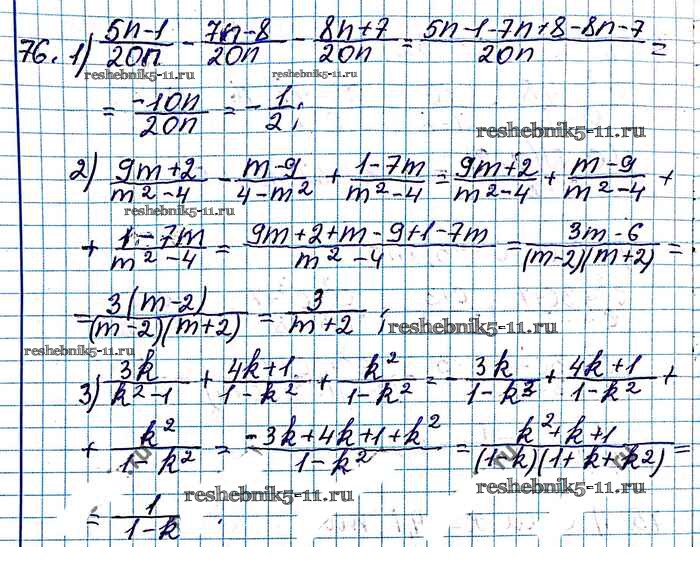 76. 1) (5n-1)/(20n) - (7n-8)/(20n) - (8n+7)/(20n) = (5n-1-7n+8-8n-7)/(20n) =
reshebnik5-11.ru reshebnik5-11.ru
= (-10n)/(20n) = -1/2;
reshebnik5-11.ru
2) (9m+2)/(m²-4) - (m-9)/(4-m²) + (1-7m)/(m²-4) = (9m+2)/(m²-4) + (m-9)/(m²-4) +
reshebnik5-11.ru
+ (1-7m)/(m²-4) = (9m+2+m-9+1-7m)/(m²-4) = (3m-6)/((m-2)(m+2)) =
= (3(m-2))/((m-2)(m+2)) = 3/(m+2);
reshebnik5-11.ru
reshebnik5-11.ru
3) (3k)/(k²-1) + (4k+1)/(1-k²) + (k²)/(1-k²) = -(3k)/(1-k³) + (4k+1)/(1-k²) +
+ (k²)/(1-k²) = (-3k+4k+1+k²)/(1-k²) = (k²+k+1)/((1-k)(1+k+k²)) =
reshebnik5-11.ru reshebnik5-11.ru
= 1/(1-k).